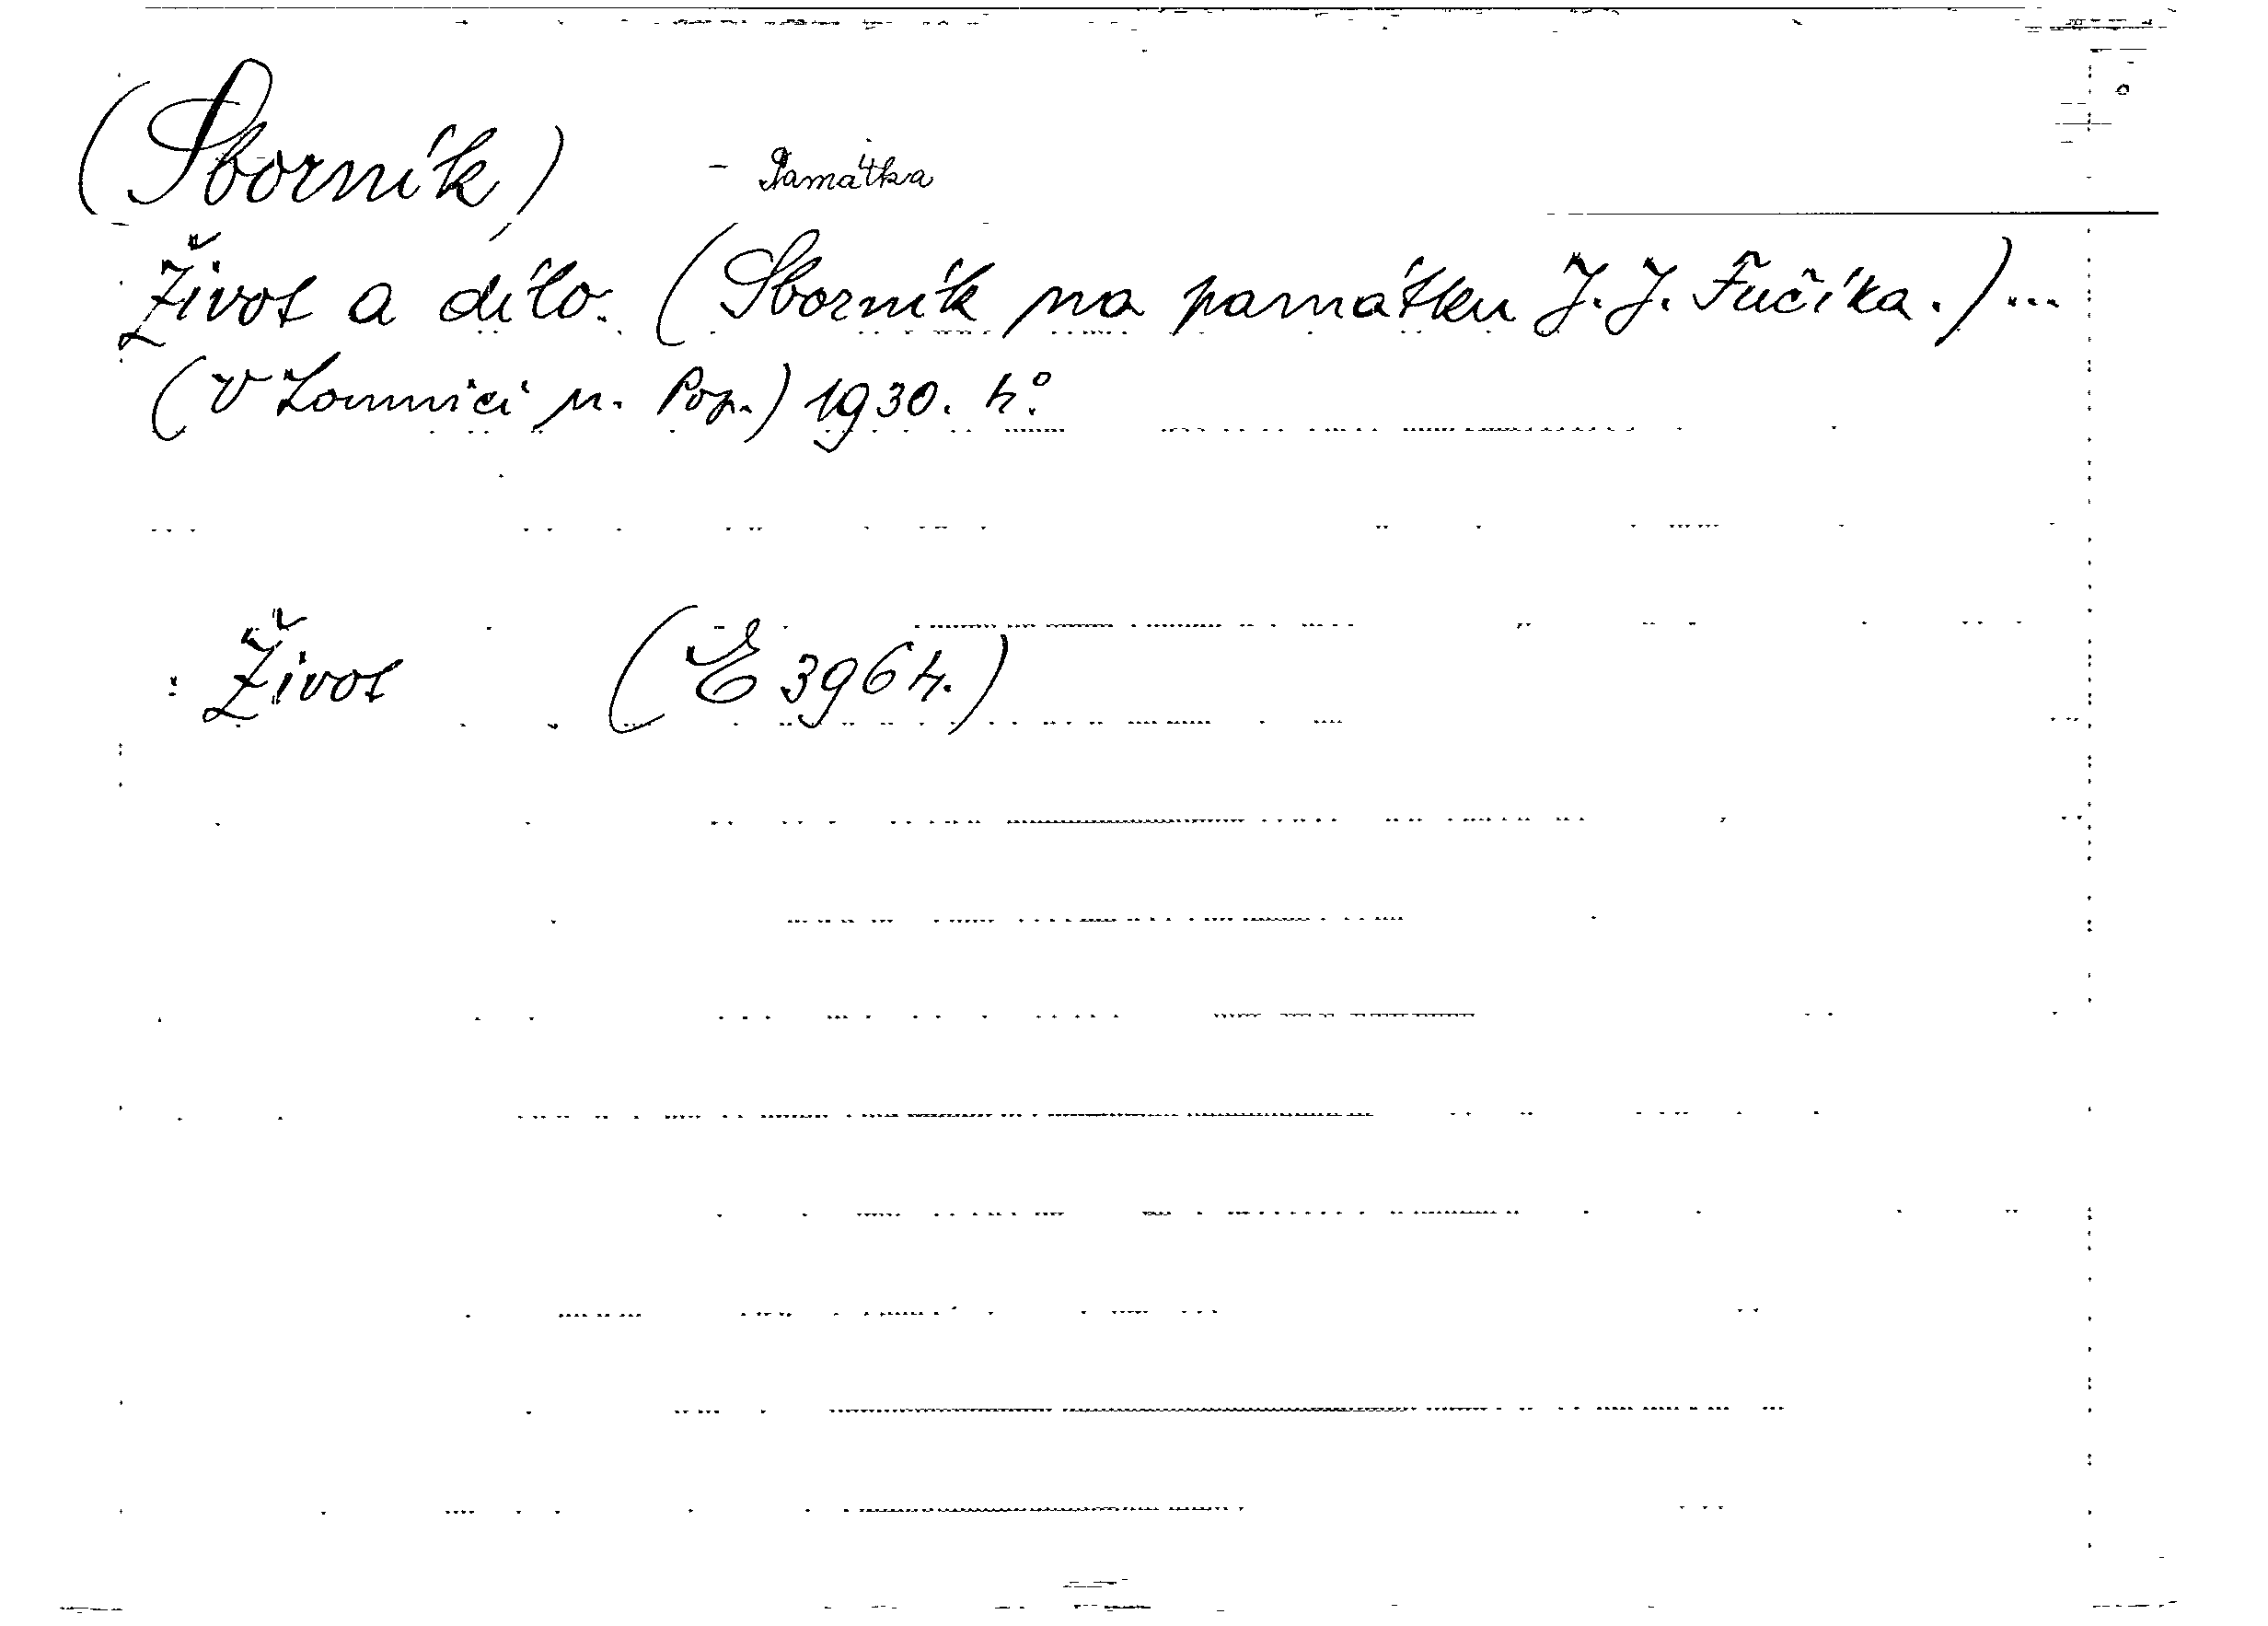 (Sborník) - Památka
Život a dílo. (Sborník na památku J. J. Fučíka.) ...
(V Lomnici n. Pop.) 1930. 4°.
: Život (E 3964.)